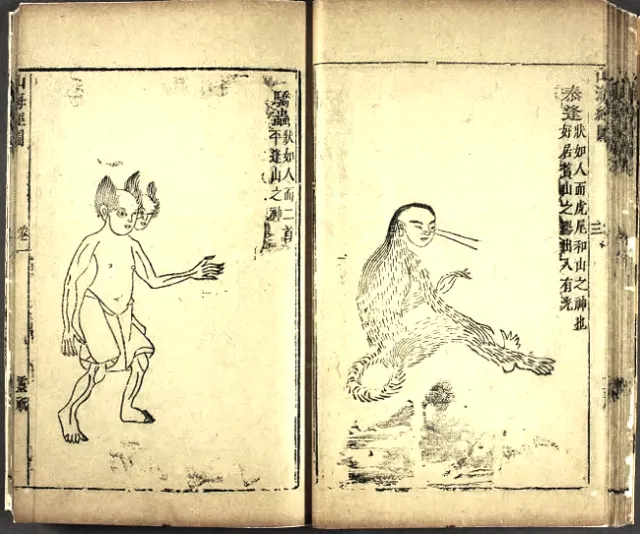 山海經圖
三
泰逢
狀如人而虎尾和山之神也
好居萯山之陽出入有光
驕蟲
狀如人而二首
平逢山之神
山海經圖
卷一
靈祇